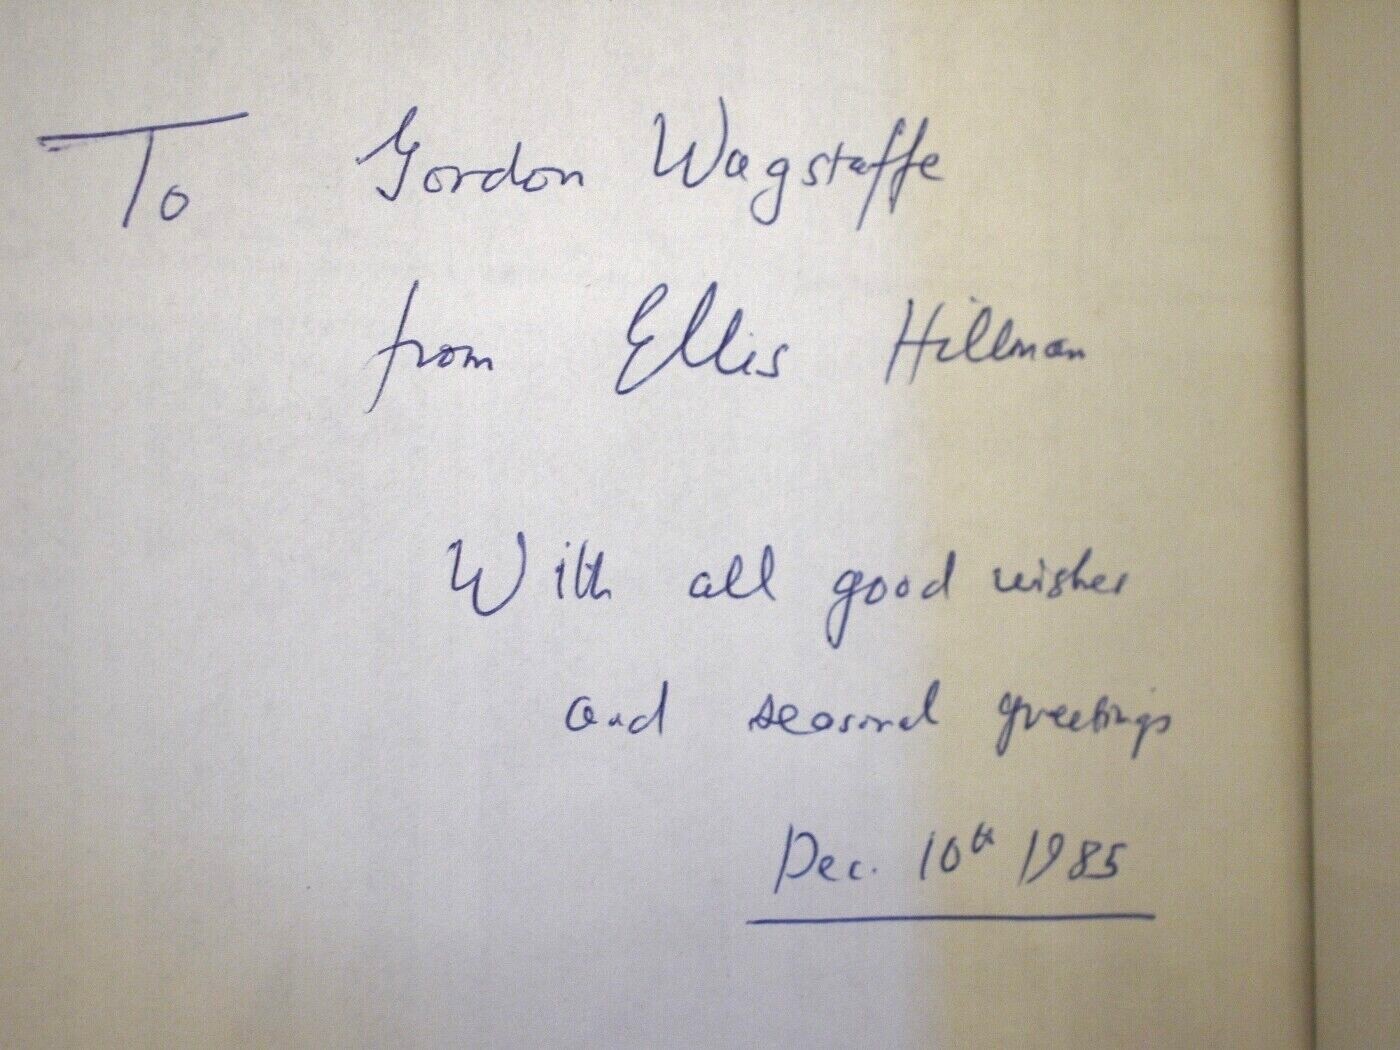 To Gordon Wagstaffe
from Ellis Hillman
With all good wishes
and seasonal greetings
Dec. 10th 1985